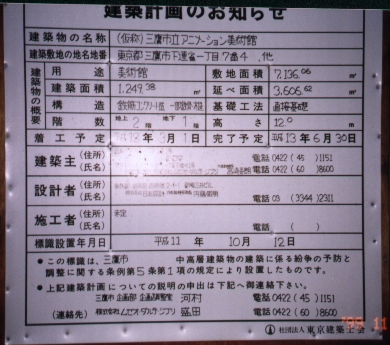 建築計画のお知らせ
建築物の名称 （仮称）三鷹市立アニメーション美術館
建築敷地の地名地番 東京都三鷹市下連雀一丁目7番4 ,他
建築物の概要
用途 美術館 敷地面積 7,136.06 ㎡
建築面積 1,249.38 ㎡ 延べ面積 3,605.62 ㎡
構造 鉄筋コンクリート造 一部鉄骨造 基礎工法 直接基礎
階数 地上 2 階 地下 1 階 高さ 12.0 m
着工予定 3月1日 完了予定 平成13年6月30日
建築主 （住所）（氏名） 電話 0422（45）1151
電話 0422（60）8600
設計者 （住所）（氏名） 電話 03（3344）2311
施工者 （住所）（氏名） 未定 電話 （ ）
標識設置年月日 平成11年 10月 12日
● この標識は、三鷹市 中高層建築物の建築に係る紛争の予防と
調整に関する条例第5条第1項の規定により設置したものです。
● 上記建築計画についての説明の申出は下記へ御連絡下さい。
三鷹市 企画部 企画調整室 河村 電話 0422（45）1151
（連絡先） 株式会社 ムゼオ・ダルテ・ジブリ 盛田 電話 0422（60）8600
社団法人 東京建築士会
'99 11